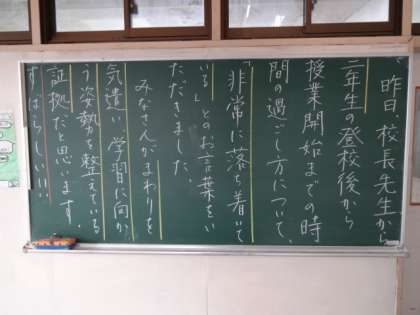 昨日、校長先生から
二年生の登校後から
授業開始までの時
間の過ごし方について、
「非常に落ち着いて
いる」とのお言葉をい
ただきました。
みなさんがまわりを
気遣い、学習に向か
う姿勢を整えている
証拠だと思います。
すばらしい!!